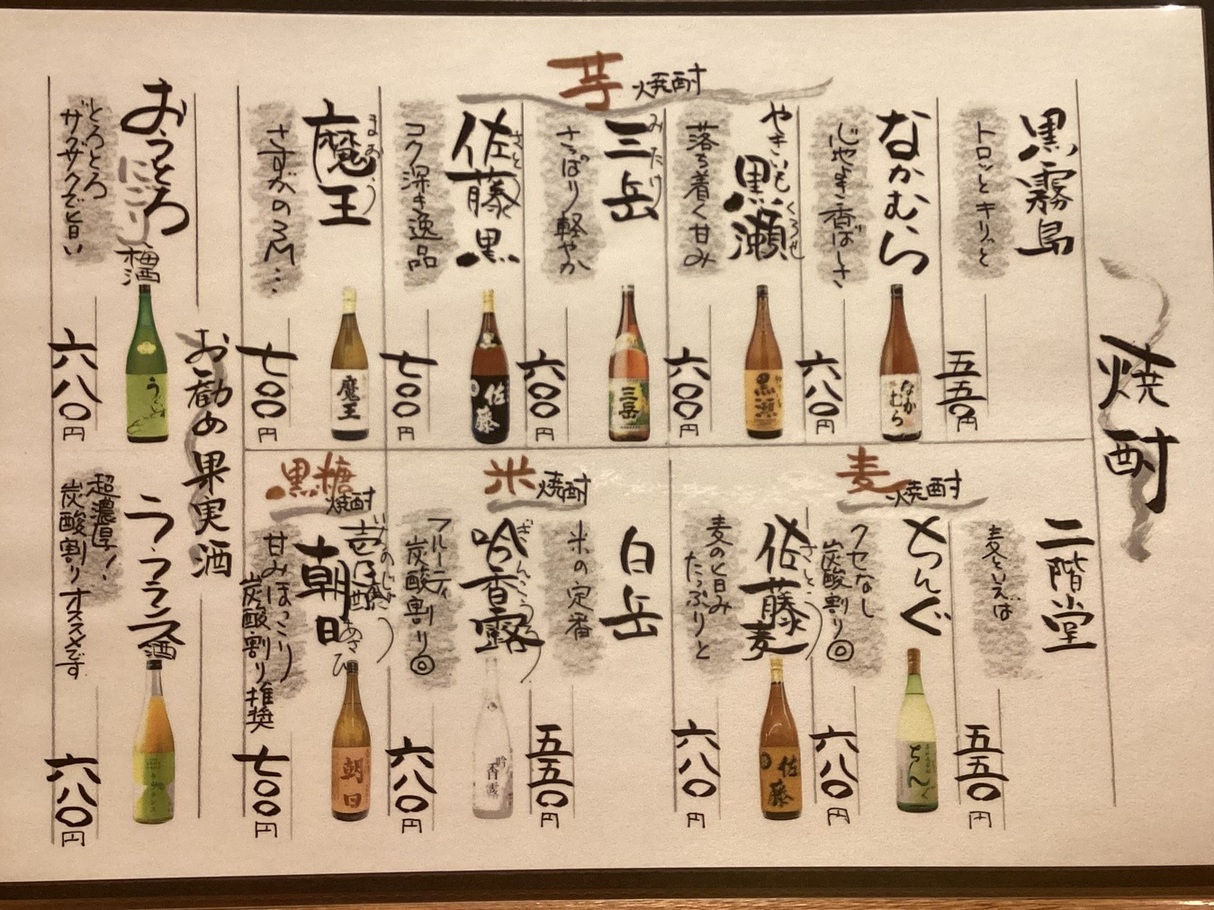 焼酎
芋焼酎
黒霧島
トロッとキリッと
五五〇円
なかむら
心地よき香ばしさ
六八〇円
なかむら
やきいも黒瀬
くろせ
落ち着く甘み
六〇〇円
黒瀬
三岳
みたけ
さっぱり軽やか
六〇〇円
三岳
佐藤黒
さとう
コク深き逸品
七〇〇円
佐藤
魔王
まおう
さすがの3M…
七〇〇円
魔王
麦焼酎
二階堂
麦といえば
五五〇円
ちんぐ
クセなし
炭酸割り◎
六八〇円
ちんぐ
佐藤麦
さとう
麦の旨み
たっぷりと
六八〇円
佐藤
米焼酎
白岳
米の定番
五五〇円
吟香露
ぎんこうろ
フルーティ
炭酸割り◎
六八〇円
吟香露
黒糖焼酎
壱乃醸
いちのじょう
朝日
あさひ
甘みほっこり
炭酸割り推奨
七〇〇円
朝日
お勧め果実酒
おうとろ
にごり
梅酒
とろとろ
ザクザクで旨い
六八〇円
ラ・フランス酒
超濃厚!
炭酸割りオススメです
六八〇円